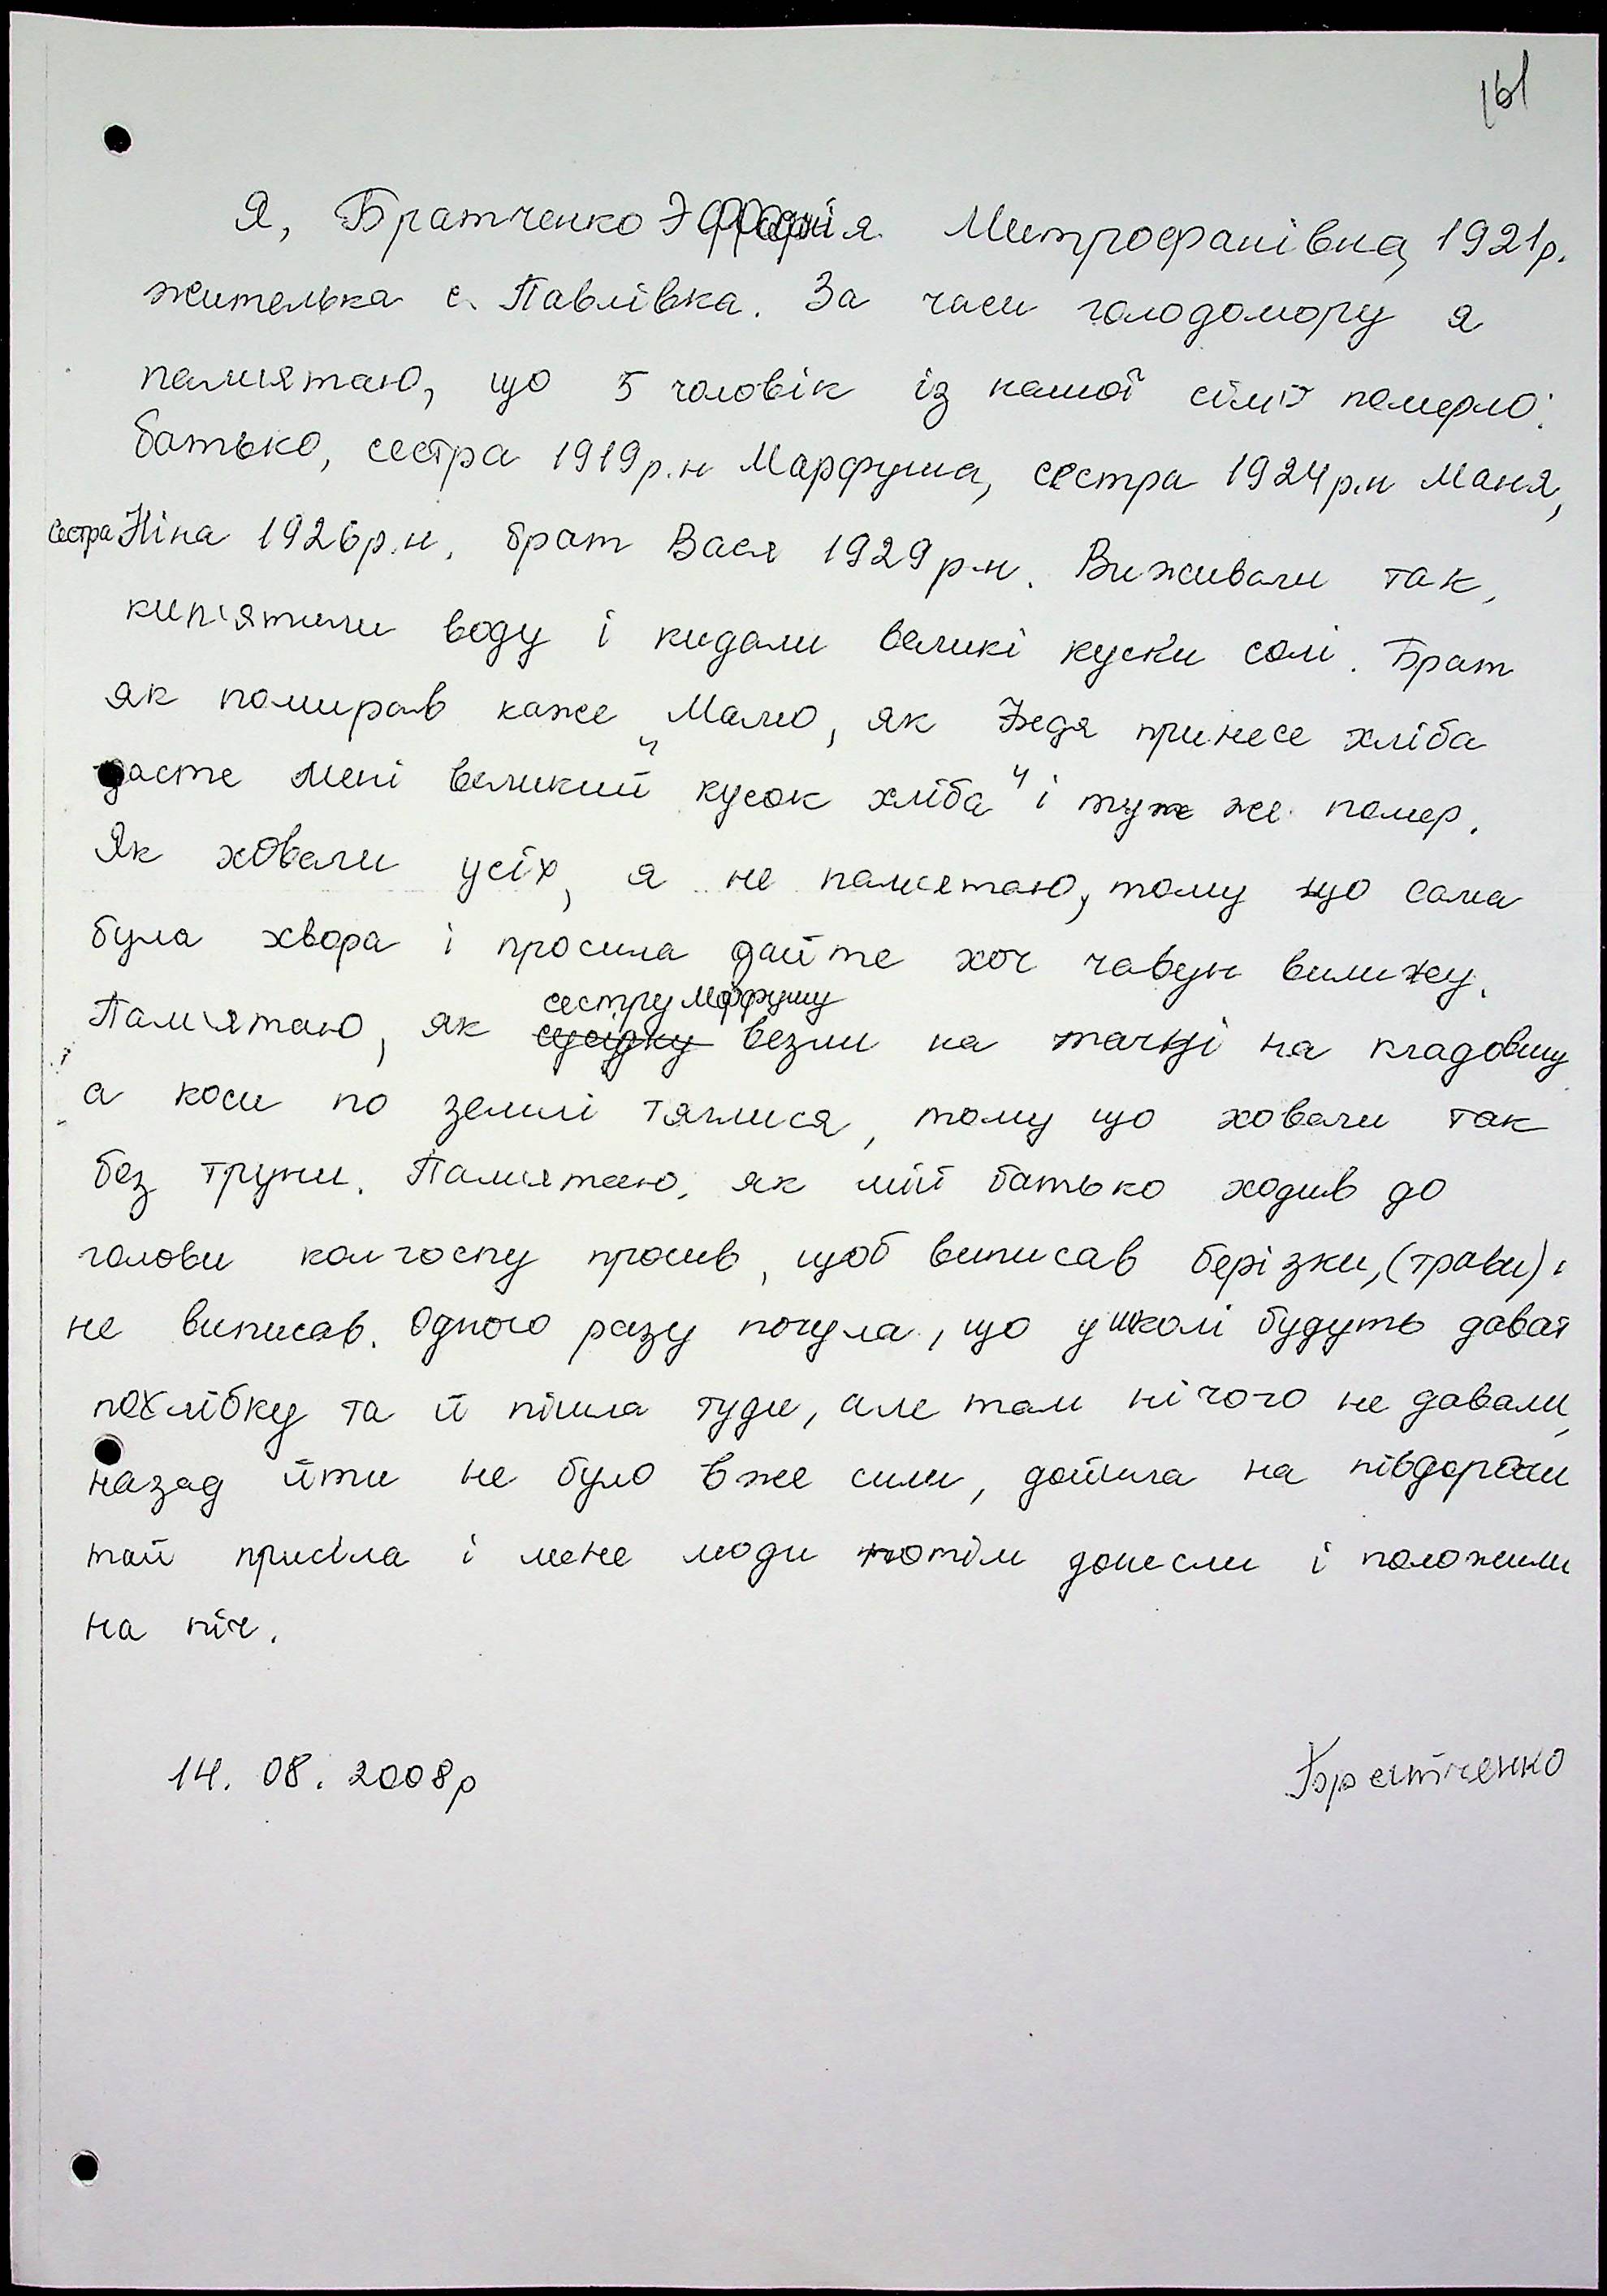 161
Я, Братченко Митрофанівна, 1921р.
жителька с. Павлівка. За часи голодомору я
пам'ятаю, що 5 чоловік із нашої сім'ї померло:
батько, сестра 1919р.н Марфуша, сестра 1924р.н Маня,
сестра Ніна 1926р.н, брат Вася 1929р.н. Виживали так,
кип'ятили воду і кидали великі куски солі. Брат
як помирав каже „Мамо, як принесе хліба
дасте мені великий кусок хліба" і туже же помер.
Як ховали усіх, я не пам'ятаю, тому що сама
була хвора і просила дайте хоч чавун вилижу.
сестру Марфушу
Пам'ятаю, як сусідку везли на тачці на кладовищу
а коси по землі тяглися, тому що ховали так
без труни. Пам'ятаю, як мій батько ходив до
голови колгоспу просив, щоб виписав берізки, (трави) і
не виписав. Одного разу почула, що у школі будуть дават
похлібку та й пішла туди, але там нічого не давали,
назад йти не було вже сили, дойшла на півдороги
тай присіла і мене люди потім донесли і положили
на піч.
14. 08. 2008р
Братченко